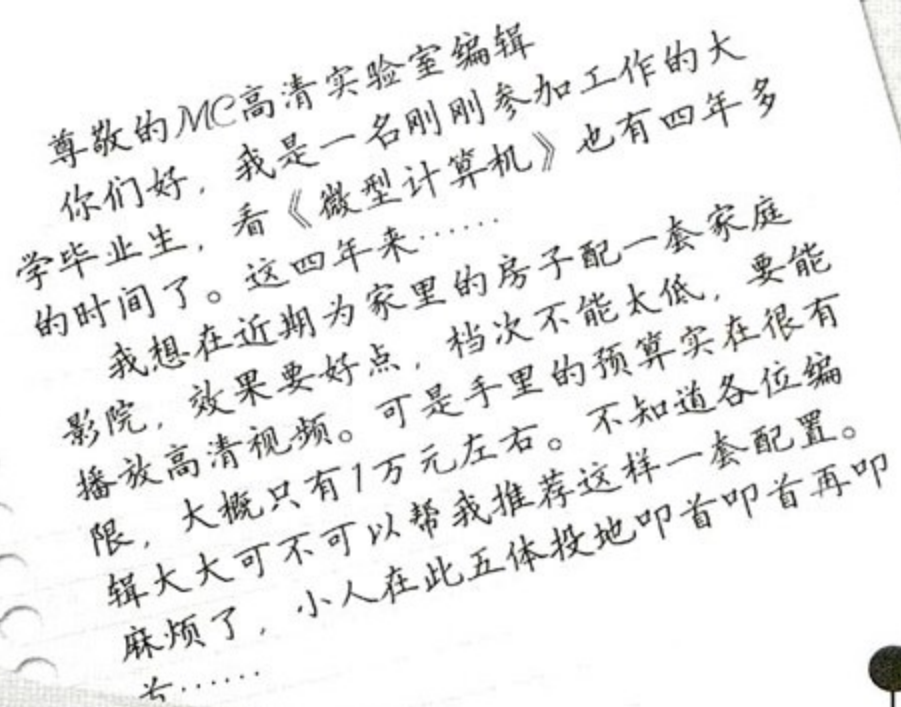 尊敬的MC高清实验室编辑
你们好，我是一名刚刚参加工作的大
学毕业生，看《微型计算机》也有四年多
的时间了。这四年来……
我想在近期为家里的房子配一套家庭
影院，效果要好点，档次不能太低，要能
播放高清视频。可是手里的预算实在很有
限，大概只有1万元左右。不知道各位编
辑大大可不可以帮我推荐这样一套配置。
麻烦了，小人在此五体投地叩首叩首再叩
……